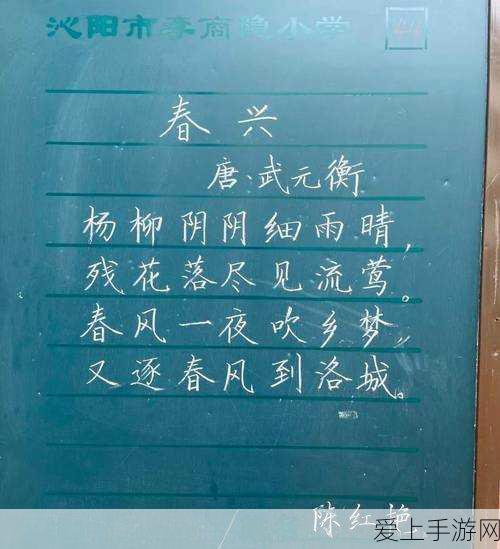 沁阳市李商隐小学 44
春兴
唐·武元衡
杨柳阴阴细雨晴,
残花落尽见流莺。
春风一夜吹乡梦,
又逐春风到洛城。
陈红艳
爱上手游网